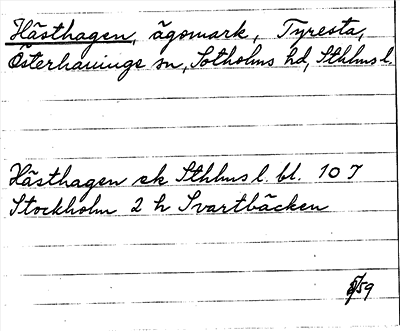 Hästhagen, ägomark, Tyresta,
Österhaninge sn, Sotholms hd, Sthlms l.
Hästhagen ek Sthlms l. bl. 107
Stockholm 2 h Svartbäcken